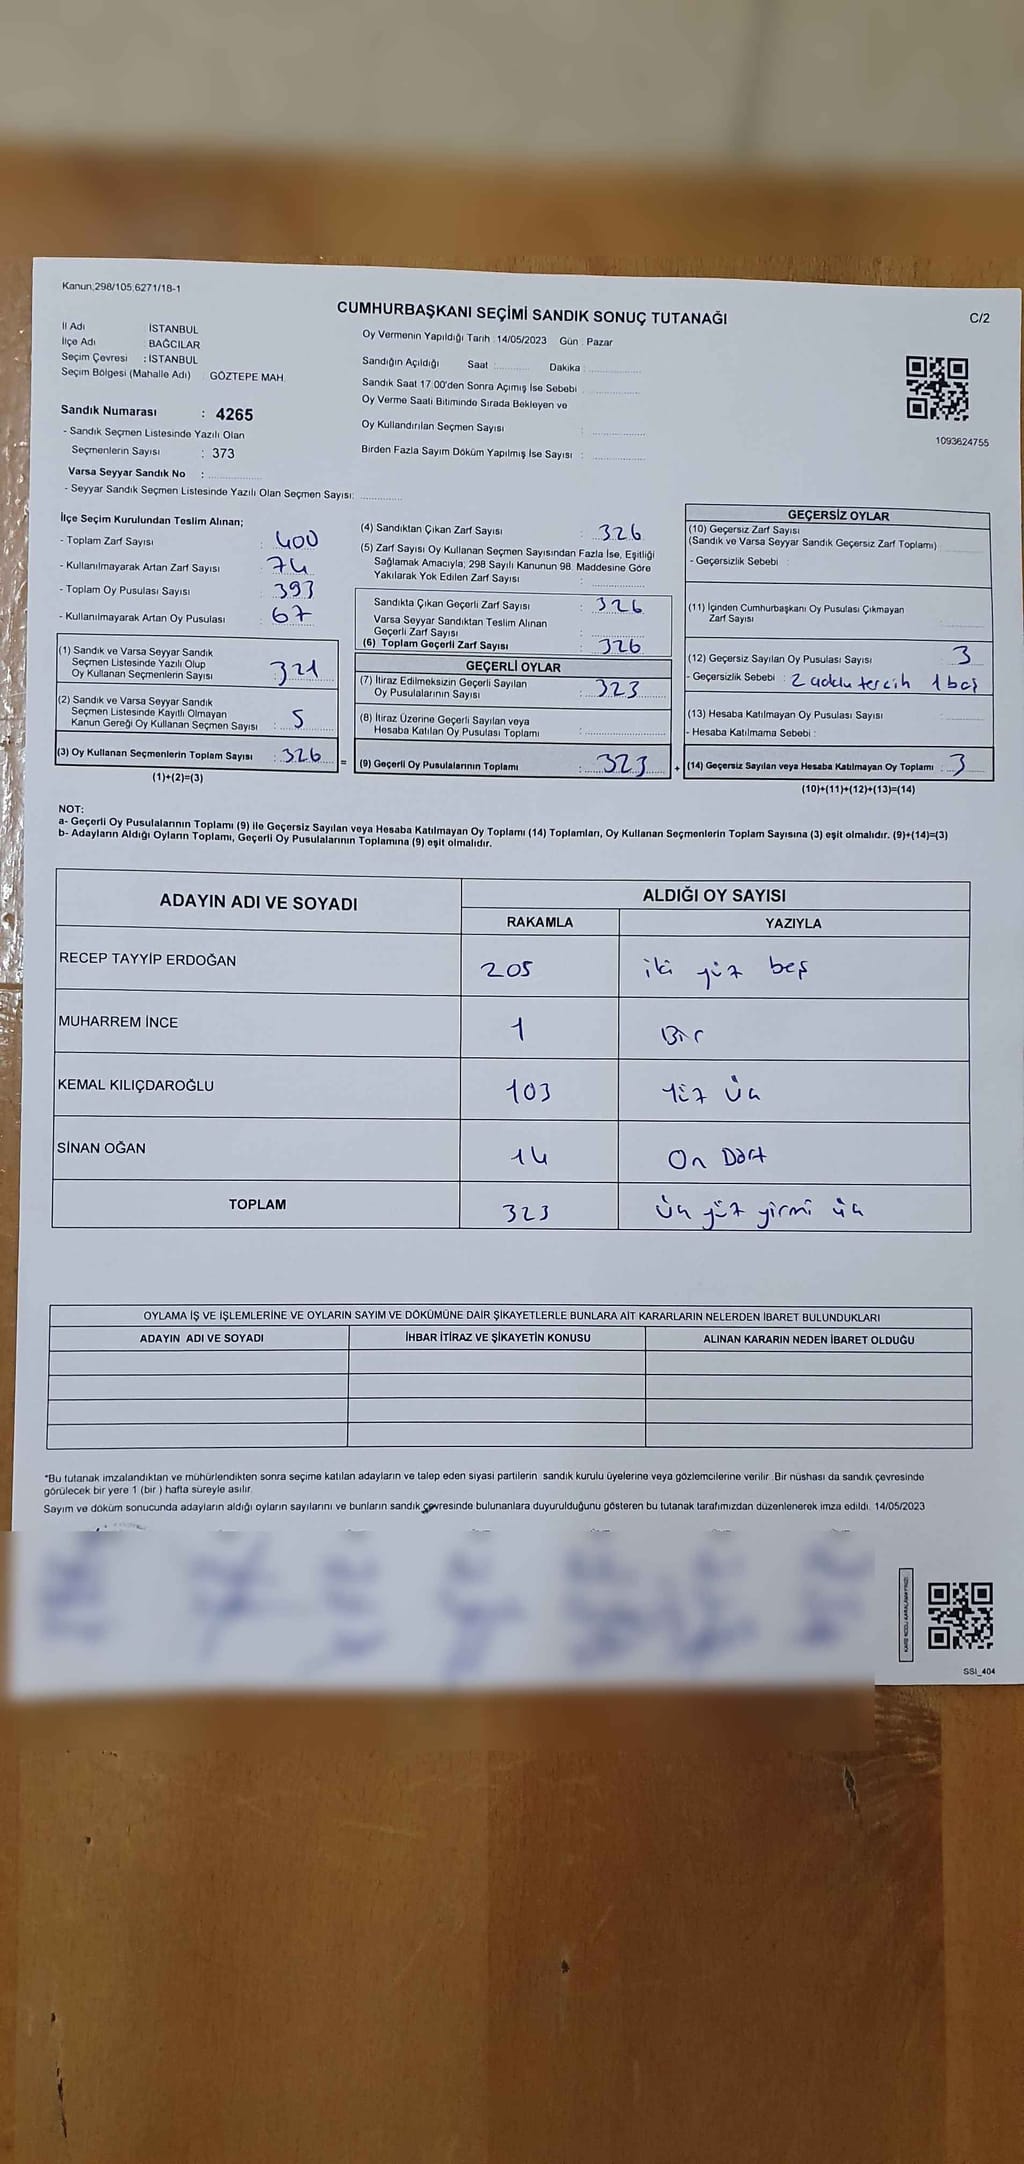 Kanun;298/105;6271/18-1
CUMHURBAŞKANI SEÇİMİ SANDIK SONUÇ TUTANAĞI
C/2
İl Adı İSTANBUL
İlçe Adı : BAĞCILAR
Seçim Çevresi : İSTANBUL
Seçim Bölgesi (Mahalle Adı) : GÖZTEPE MAH.
Oy Vermenin Yapıldığı Tarih : 14/05/2023 Gün : Pazar
Sandığın Açıldığı Saat : Dakika :
Sandık Saat 17:00'den Sonra Açımış İse Sebebi
Oy Verme Saati Bitiminde Sırada Bekleyen ve
Oy Kullandırılan Seçmen Sayısı :
Birden Fazla Sayım Döküm Yapılmış İse Sayısı :
1093624755
Sandık Numarası : 4265
- Sandık Seçmen Listesinde Yazılı Olan
Seçmenlerin Sayısı : 373
Varsa Seyyar Sandık No :
- Seyyar Sandık Seçmen Listesinde Yazılı Olan Seçmen Sayısı:
İlçe Seçim Kurulundan Teslim Alınan;
- Toplam Zarf Sayısı : 400
- Kullanılmayarak Artan Zarf Sayısı : 74
- Toplam Oy Pusulası Sayısı : 393
- Kullanılmayarak Artan Oy Pusulası : 67
(1) Sandık ve Varsa Seyyar Sandık
Seçmen Listesinde Yazılı Olup
Oy Kullanan Seçmenlerin Sayısı 321
(2) Sandık ve Varsa Seyyar Sandık
Seçmen Listesinde Kayıtlı Olmayan
Kanun Gereği Oy Kullanan Seçmen Sayısı : 5
(3) Oy Kullanan Seçmenlerin Toplam Sayısı : 326
(1)+(2)=(3)
(4) Sandıktan Çıkan Zarf Sayısı : 326
(5) Zarf Sayısı Oy Kullanan Seçmen Sayısından Fazla İse, Eşitliği
Sağlamak Amacıyla; 298 Sayılı Kanunun 98. Maddesine Göre
Yakılarak Yok Edilen Zarf Sayısı :
Sandıkta Çıkan Geçerli Zarf Sayısı : 326
Varsa Seyyar Sandıktan Teslim Alınan
Geçerli Zarf Sayısı :
(6) Toplam Geçerli Zarf Sayısı : 326
GEÇERLİ OYLAR
(7) İtiraz Edilmeksizin Geçerli Sayılan
Oy Pusulalarının Sayısı : 323
(8) İtiraz Üzerine Geçerli Sayılan veya
Hesaba Katılan Oy Pusulası Toplamı :
= (9) Geçerli Oy Pusulalarının Toplamı : 323
GEÇERSİZ OYLAR
(10) Geçersiz Zarf Sayısı
(Sandık ve Varsa Seyyar Sandık Geçersiz Zarf Toplamı)
- Geçersizlik Sebebi :
(11) İçinden Cumhurbaşkanı Oy Pusulası Çıkmayan
Zarf Sayısı
(12) Geçersiz Sayılan Oy Pusulası Sayısı 3
- Geçersizlik Sebebi : 2 tercih 1 boş
(13) Hesaba Katılmayan Oy Pusulası Sayısı
- Hesaba Katılmama Sebebi :
+ (14) Geçersiz Sayılan veya Hesaba Katılmayan Oy Toplamı : 3
(10)+(11)+(12)+(13)=(14)
NOT:
a- Geçerli Oy Pusulalarının Toplamı (9) ile Geçersiz Sayılan veya Hesaba Katılmayan Oy Toplamı (14) Toplamları, Oy Kullanan Seçmenlerin Toplam Sayısına (3) eşit olmalıdır. (9)+(14)=(3)
b- Adayların Aldığı Oyların Toplamı, Geçerli Oy Pusulalarının Toplamına (9) eşit olmalıdır.
ADAYIN ADI VE SOYADI ALDIĞI OY SAYISI
RAKAMLA YAZIYLA
RECEP TAYYİP ERDOĞAN 205 iki yüz beş
MUHARREM İNCE 1 Bir
KEMAL KILIÇDAROĞLU 103 Yüz üç
SİNAN OĞAN 14 On Dört
TOPLAM 323 üç yüz yirmi üç
OYLAMA İŞ VE İŞLEMLERİNE VE OYLARIN SAYIM VE DÖKÜMÜNE DAİR ŞİKAYETLERLE BUNLARA AİT KARARLARIN NELERDEN İBARET BULUNDUKLARI
ADAYIN ADI VE SOYADI İHBAR İTİRAZ VE ŞİKAYETİN KONUSU ALINAN KARARIN NEDEN İBARET OLDUĞU
*Bu tutanak imzalandıktan ve mühürlendikten sonra seçime katılan adayların ve talep eden siyasi partilerin sandık kurulu üyelerine veya gözlemcilerine verilir. Bir nüshası da sandık çevresinde
görülecek bir yere 1 (bir ) hafta süreyle asılır.
Sayım ve döküm sonucunda adayların aldığı oyların sayılarını ve bunların sandık çevresinde bulunanlara duyurulduğunu gösteren bu tutanak tarafımızdan düzenlenerek imza edildi. 14/05/2023
SSI_404